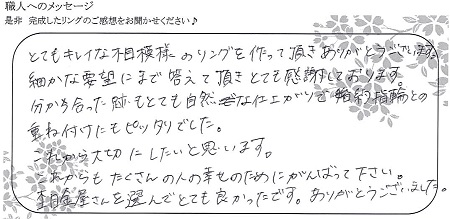 職人へのメッセージ
是非 完成したリングのご感想をお聞かせください♪
とてもキレイな木目模様のリングを作って頂きありがとうございます。
細かな要望にまで答えて頂きとても感謝しております。
分かち合った跡もとても自然な仕上がりで婚約指輪との
重ね付けにもピッタリでした。
これから大切にしたいと思います。
これからもたくさんの人の幸せのためにがんばって下さい。
杢目金屋さんを選んでとても良かったです。ありがとうございました。